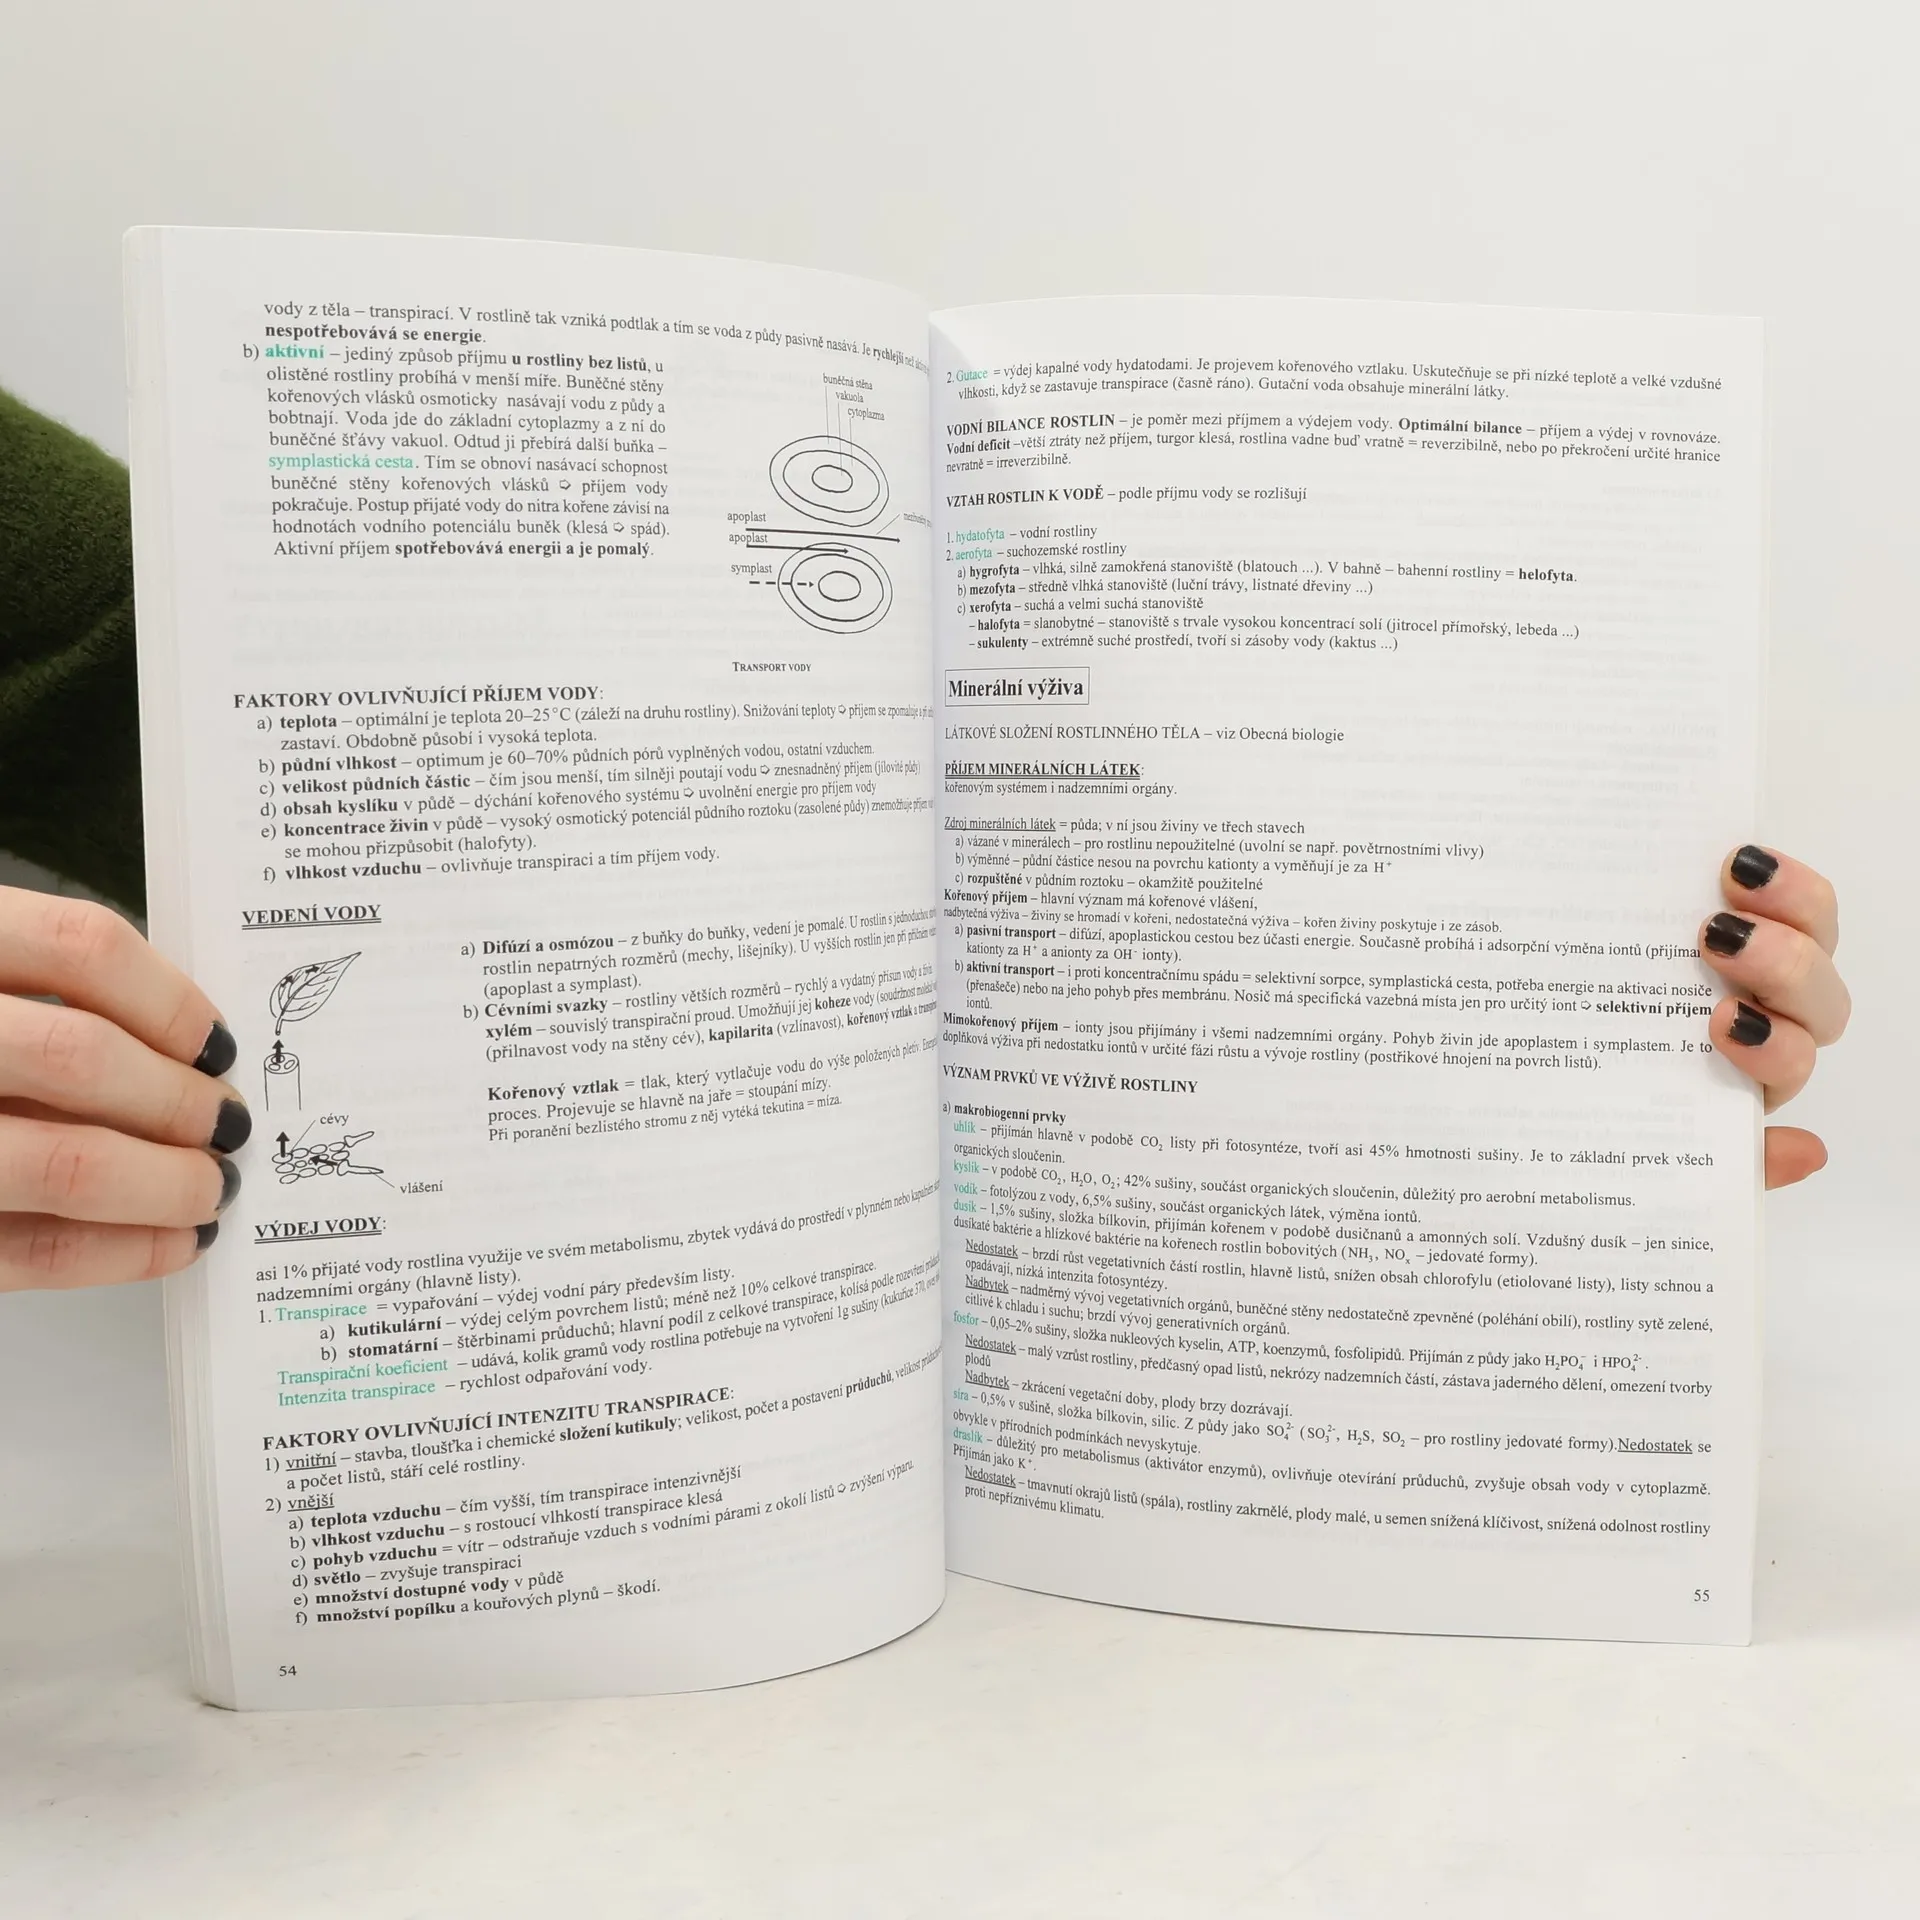 vody z těla – transpirací. V rostlině tak vzniká podtlak a tím se voda z půdy pasivně nasává. Je rychlejší než
nespotřebovává se energie.
b) aktivní – jediný způsob příjmu u rostliny bez listů, u
olistěné rostliny probíhá v menší míře. Buněčné stěny
kořenových vlásků osmoticky nasávají vodu z půdy a
bobtnají. Voda jde do základní cytoplazmy a z ní do
buněčné šťávy vakuol. Odtud ji přebírá další buňka –
symplastická cesta. Tím se obnoví nasávací schopnost
buněčné stěny kořenových vlásků ➪ příjem vody
pokračuje. Postup přijaté vody do nitra kořene závisí na
hodnotách vodního potenciálu buněk (klesá ➪ spád).
Aktivní příjem spotřebovává energii a je pomalý.
buněčná stěna
vakuola
cytoplazma
apoplast
apoplast
symplast
TRANSPORT VODY
FAKTORY OVLIVŇUJÍCÍ PŘÍJEM VODY:
a) teplota – optimální je teplota 20–25°C (záleží na druhu rostliny). Snižování teploty ➪ příjem se zpomaluje a při
zastaví. Obdobně působí i vysoká teplota.
b) půdní vlhkost – optimum je 60–70% půdních pórů vyplněných vodou, ostatní vzduchem.
c) velikost půdních částic – čím jsou menší, tím silněji poutají vodu ➪ znesnadněný příjem (jílovité půdy)
d) obsah kyslíku v půdě – dýchání kořenového systému ➪ uvolnění energie pro příjem vody
e) koncentrace živin v půdě – vysoký osmotický potenciál půdního roztoku (zasolené půdy) znemožňuje příjem
se mohou přizpůsobit (halofyty).
f) vlhkost vzduchu – ovlivňuje transpiraci a tím příjem vody.
VEDENÍ VODY
a) Difúzí a osmózou – z buňky do buňky, vedení je pomalé. U rostlin s jednoduchou
rostlin nepatrných rozměrů (mechy, lišejníky). U vyšších rostlin jen při příčném
(apoplast a symplast).
b) Cévními svazky – rostliny větších rozměrů – rychlý a vydatný přísun vody a živin
xylém – souvislý transpirační proud. Umožňují jej koheze vody (soudržnost molekul
(přilnavost vody na stěny cév), kapilarita (vzlínavost), kořenový vztlak a
Kořenový vztlak = tlak, který vytlačuje vodu do výše položených pletiv.
proces. Projevuje se hlavně na jaře = stoupání mízy.
Při poranění bezlistého stromu z něj vytéká tekutina = míza.
cévy
vlášení
VÝDEJ VODY:
asi 1% přijaté vody rostlina využije ve svém metabolismu, zbytek vydává do prostředí v plynném nebo kapalném
nadzemními orgány (hlavně listy).
1. Transpirace = vypařování – výdej vodní páry především listy.
a) kutikulární – výdej celým povrchem listů; méně než 10% celkové transpirace.
b) stomatární – štěrbinami průduchů; hlavní podíl z celkové transpirace, kolísá podle rozevření
Transpirační koeficient – udává, kolik gramů vody rostlina potřebuje na vytvoření 1g sušiny (kukuřice 370,
Intenzita transpirace – rychlost odpařování vody.
FAKTORY OVLIVŇUJÍCÍ INTENZITU TRANSPIRACE:
1) vnitřní – stavba, tloušťka i chemické složení kutikuly; velikost, počet a postavení průduchů, velikost
a počet listů, stáří celé rostliny.
2) vnější
a) teplota vzduchu – čím vyšší, tím transpirace intenzivnější
b) vlhkost vzduchu – s rostoucí vlhkostí transpirace klesá
c) pohyb vzduchu = vítr – odstraňuje vzduch s vodními párami z okolí listů ➪ zvýšení výparu.
d) světlo – zvyšuje transpiraci
e) množství dostupné vody v půdě
f) množství popílku a kouřových plynů – škodí.
54
2. Gutace = výdej kapalné vody hydatodami. Je projevem kořenového vztlaku. Uskutečňuje se při nízké teplotě a velké vzdušné
vlhkosti, když se zastavuje transpirace (časně ráno). Gutační voda obsahuje minerální látky.
VODNÍ BILANCE ROSTLIN – je poměr mezi příjmem a výdejem vody. Optimální bilance – příjem a výdej v rovnováze.
Vodní deficit –větší ztráty než příjem, turgor klesá, rostlina vadne buď vratně = reverzibilně, nebo po překročení určité hranice
nevratně = irreverzibilně.
VZTAH ROSTLIN K VODĚ – podle příjmu vody se rozlišují
1. hydatofyta – vodní rostliny
2. aerofyta – suchozemské rostliny
a) hygrofyta – vlhká, silně zamokřená stanoviště (blatouch ...). V bahně – bahenní rostliny = helofyta.
b) mezofyta – středně vlhká stanoviště (luční trávy, listnaté dřeviny ...)
c) xerofyta – suchá a velmi suchá stanoviště
– halofyta = slanobytné – stanoviště s trvale vysokou koncentrací solí (jitrocel přímořský, lebeda ...)
– sukulenty – extrémně suché prostředí, tvoří si zásoby vody (kaktus ...)
Minerální výživa
LÁTKOVÉ SLOŽENÍ ROSTLINNÉHO TĚLA – viz Obecná biologie
PŘÍJEM MINERÁLNÍCH LÁTEK:
kořenovým systémem i nadzemními orgány.
Zdroj minerálních látek = půda; v ní jsou živiny ve třech stavech
a) vázané v minerálech – pro rostlinu nepoužitelné (uvolní se např. povětrnostními vlivy)
b) výměnné – půdní částice nesou na povrchu kationty a vyměňují je za H⁺
c) rozpuštěné v půdním roztoku – okamžitě použitelné
Kořenový příjem – hlavní význam má kořenové vlášení,
nadbytečná výživa – živiny se hromadí v kořeni, nedostatečná výživa – kořen živiny poskytuje i ze zásob.
a) pasivní transport – difúzí, apoplastickou cestou bez účasti energie. Současně probíhá i adsorpční výměna iontů (přijímá
kationty za H⁺ a anionty za OH⁻ ionty).
b) aktivní transport – i proti koncentračnímu spádu = selektivní sorpce, symplastická cesta, potřeba energie na aktivaci nosiče
(přenašeče) nebo na jeho pohyb přes membránu. Nosič má specifická vazebná místa jen pro určitý iont ➪ selektivní příjem
iontů.
Mimokořenový příjem – ionty jsou přijímány i všemi nadzemními orgány. Pohyb živin jde apoplastem i symplastem. Je to
doplňková výživa při nedostatku iontů v určité fázi růstu a vývoje rostliny (postřikové hnojení na povrch listů).
VÝZNAM PRVKŮ VE VÝŽIVĚ ROSTLINY
a) makrobiogenní prvky
uhlík – přijímán hlavně v podobě CO₂ listy při fotosyntéze, tvoří asi 45% hmotnosti sušiny. Je to základní prvek všech
organických sloučenin.
kyslík – v podobě CO₂, H₂O, O₂; 42% sušiny, součást organických sloučenin, důležitý pro aerobní metabolismus.
vodík – fotolýzou z vody, 6,5% sušiny, součást organických látek, výměna iontů.
dusík – 1,5% sušiny, složka bílkovin, přijímán kořenem v podobě dusičnanů a amonných solí. Vzdušný dusík – jen sinice,
dusíkaté baktérie a hlízkové baktérie na kořenech rostlin bobovitých (NH₃, NOₓ – jedovaté formy).
Nedostatek – brzdí růst vegetativních částí rostlin, hlavně listů, snížen obsah chlorofylu (etiolované listy), listy schnou a
opadávají, nízká intenzita fotosyntézy.
Nadbytek – nadměrný vývoj vegetativních orgánů, buněčné stěny nedostatečně zpevněné (poléhání obilí), rostliny sytě zelené,
citlivé k chladu i suchu; brzdí vývoj generativních orgánů.
fosfor – 0,05–2% sušiny, složka nukleových kyselin, ATP, koenzymů, fosfolipidů. Přijímán z půdy jako H₂PO₄⁻ i HPO₄²⁻.
Nedostatek – malý vzrůst rostliny, předčasný opad listů, nekrózy nadzemních částí, zástava jaderného dělení, omezení tvorby
plodů
Nadbytek – zkrácení vegetační doby, plody brzy dozrávají.
síra – 0,5% v sušině, složka bílkovin, silic. Z půdy jako SO₄²⁻ (SO₃²⁻, H₂S, SO₂ – pro rostliny jedovaté formy). Nedostatek se
obvykle v přírodních podmínkách nevyskytuje.
draslík – důležitý pro metabolismus (aktivátor enzymů), ovlivňuje otevírání průduchů, zvyšuje obsah vody v cytoplazmě.
Přijímán jako K⁺.
Nedostatek – tmavnutí okrajů listů (spála), rostliny zakrnělé, plody malé, u semen snížená klíčivost, snížená odolnost rostliny
proti nepříznivému klimatu.
55